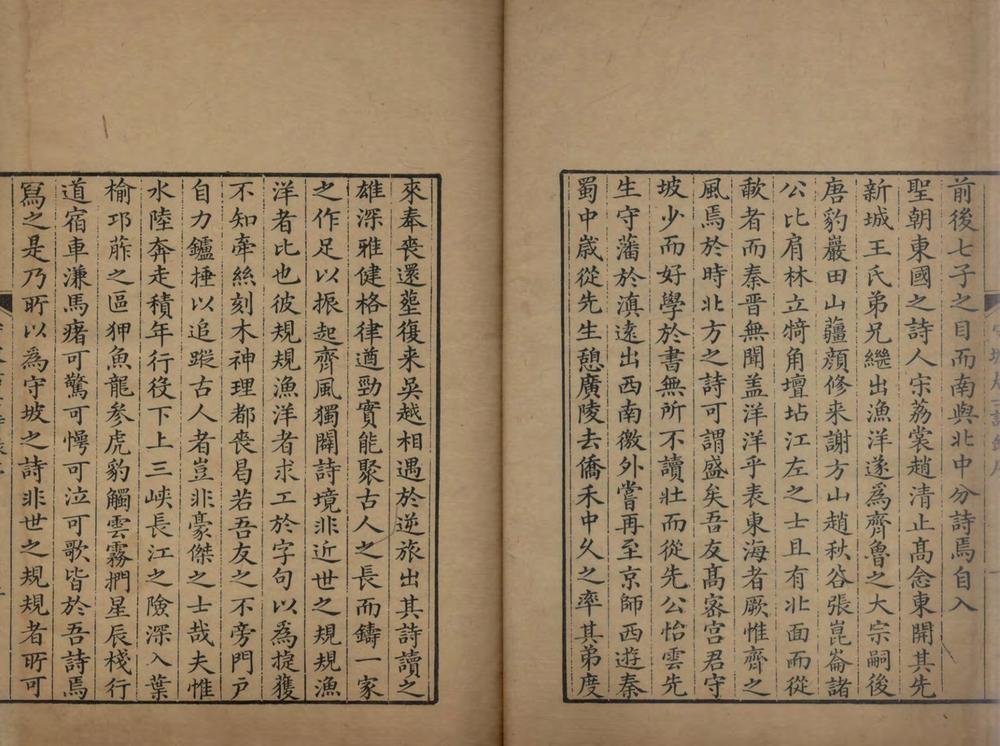 前後七子之目而南與北中分詩焉自入
聖朝東國之詩人宋荔裳趙清止髙念東開其先
新城王氏弟兄繼出漁洋遂爲齊魯之大宗嗣後
唐豹巖田山薑顔修来謝方山趙秋谷張崑崙諸
公比肩林立犄角壇坫江左之士且有北面而從
歈者而秦晋無聞盖洋洋乎表東海者厥惟齊之
風焉於時北方之詩可謂盛矣吾友髙宻宫君守
坡少而好學於書無所不讀壯而從先公怡雲先
生守藩於滇遠出西南徼外嘗再至京師西遊秦
蜀中歲從先生憩廣陵去僑禾中久之率其弟度
來奉喪還塟復来吳越相遇於逆旅出其詩讀之
雄深雅健格律遒勁實能聚古人之長而鑄一家
之作足以振起齊風獨闢詩境非近世之規規漁
洋者比也彼規規漁洋者求工於字句以爲捷獲
不知牽絲刻木神理都喪曷若吾友之不旁門戸
自力鑪捶以追蹤古人者豈非豪傑之士哉夫惟
水陸奔走積年行役下上三峽長江之險深入葉
榆邛莋之區狎魚龍參虎豹觸雲霧捫星辰棧行
道宿車溓馬瘏可驚可愕可泣可歌皆於吾詩焉
寫之是乃所以爲守坡之詩非世之規規者所可